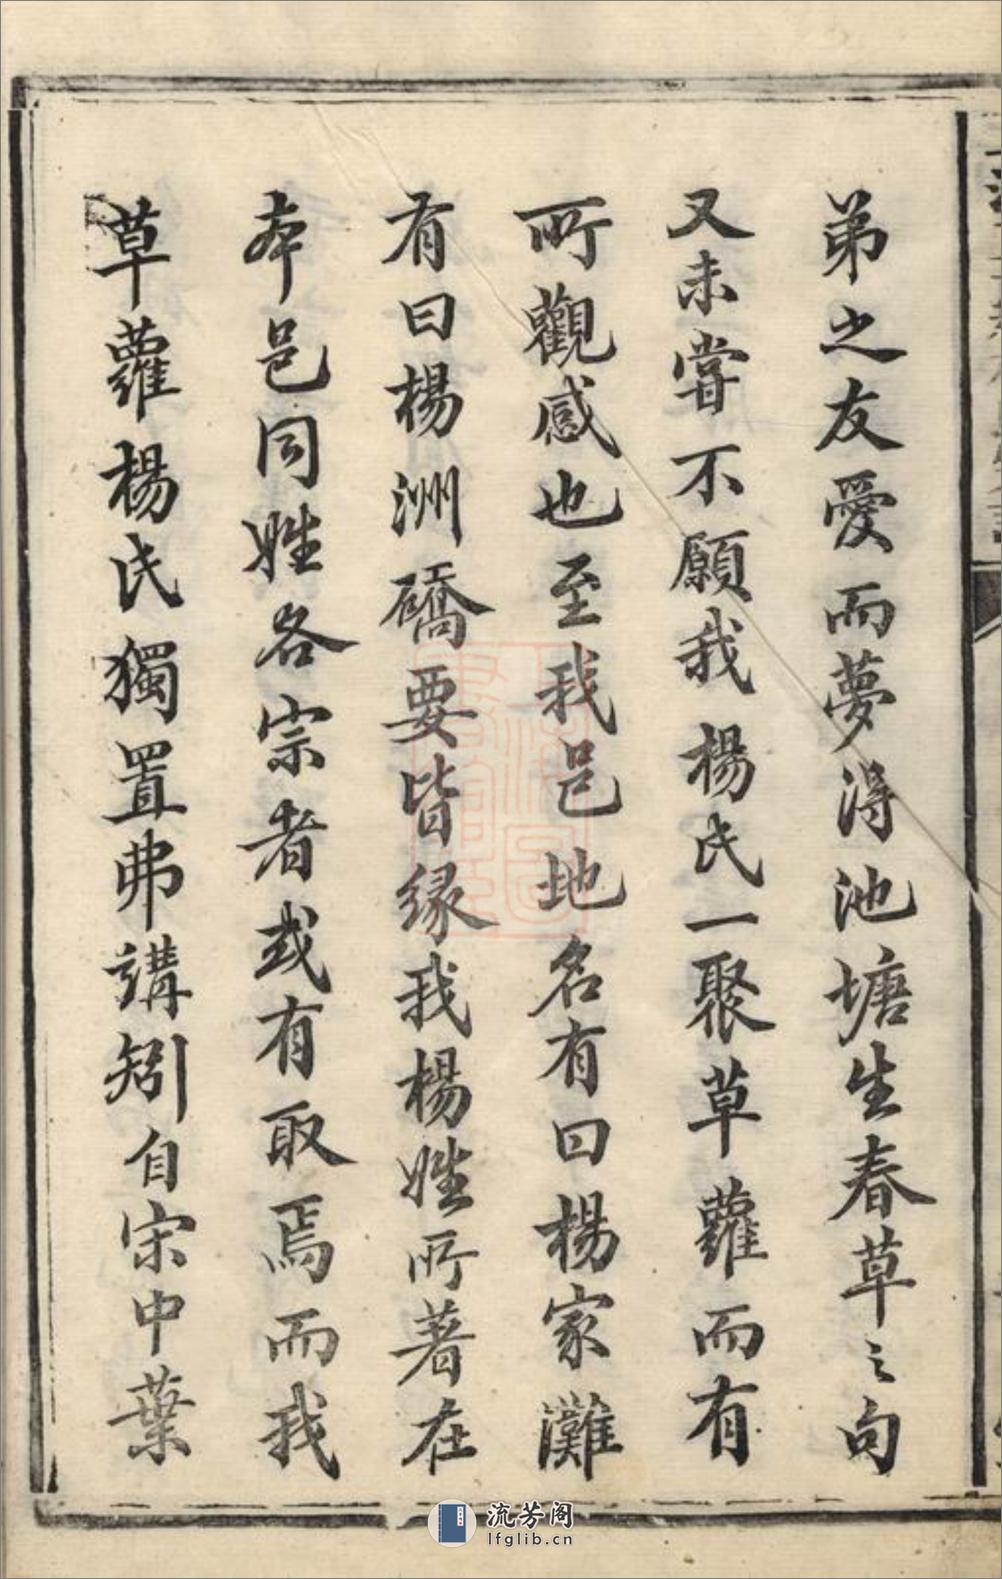 弟之友愛而夢得池塘生春草之句
又未嘗不願我楊氏一聚草蘿而有
所觀感也至我邑地名有曰楊家灘
有曰楊洲礄要皆緣我楊姓所著在
本邑同姓各宗者或有取焉而我
草蘿楊氏獨置弗講矧自宋中葉
流芳阁
lfglib.cn